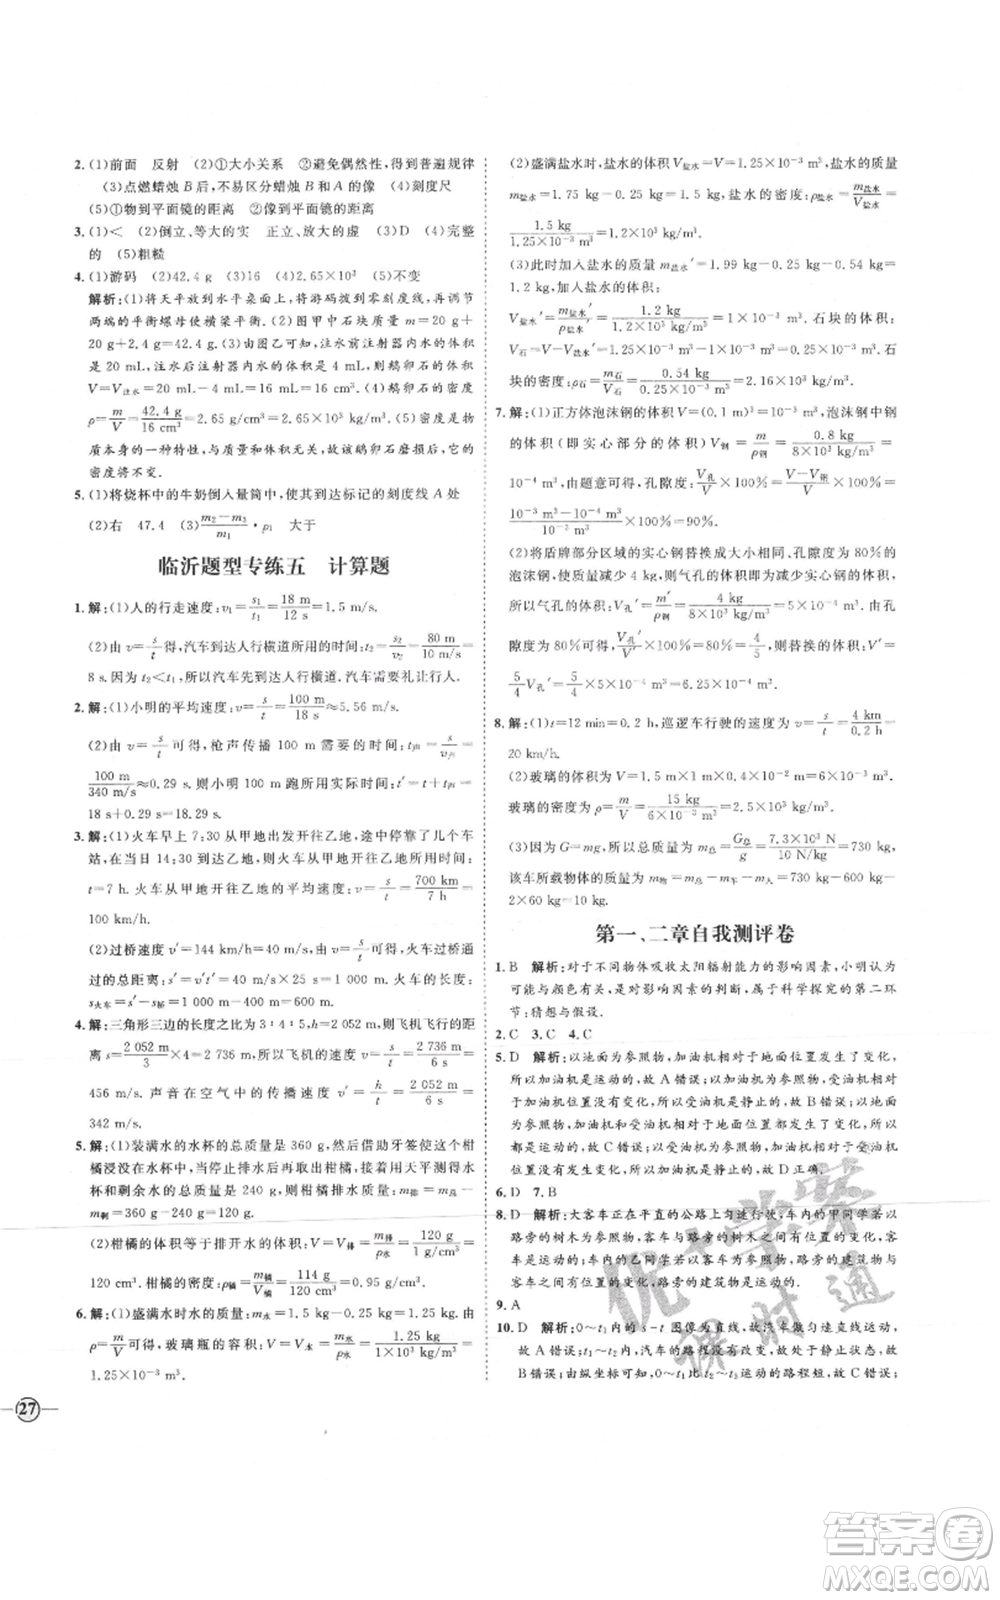 2. (1)前面　反射　(2)①大小关系　②避免偶然性,得到普遍规律
(3)点燃蜡烛 B 后,不易区分蜡烛 B 和 A 的像　(4)刻度尺
(5)①物到平面镜的距离　②像到平面镜的距离
3. (1)<　(2)倒立、等大的实　正立、放大的虚　(3)D　(4)完整
的　(5)粗糙
4. (1)游码　(2)42.4 g　(3)16　(4)2.65×10³　(5)不变
解析:(1)将天平放到水平桌面上,将游码拨到零刻度线,调节
两端的平衡螺母使横梁平衡。(2)图甲中石块的质量 m=20 g+
20 g+2.4 g=42.4 g。(3)由图乙可知,注水前注射器内水的体积
是 20 mL,注水后注射器内水的体积是 4 mL,则鹅卵石的体积
V=V注水=20 mL-4 mL=16 mL=16 cm³。(4)鹅卵石的密度
ρ=m/V=42.4 g/16 cm³=2.65 g/cm³=2.65×10³ kg/m³。(5)密度是物
质本身的一种特性,与质量和体积无关,故该鹅卵石磨碎后的密
度将不变。
5. (1)将烧杯中的牛奶倒入量筒中,使其达到标记的刻度线 A 处
(2)右　47.4　(3)(m₂-m₃)/m₁·ρ₁　大于
临沂题型专练五　计算题
1. 解:(1)人的行走速度:v₁=s₁/t₁=18 m/12 s=1.5 m/s.
(2)由 v=s/t可得,汽车到达人行横道所用的时间:t₂=s₂/v₂=80 m/10 m/s=
8 s.因为 t₂<t₁,所以汽车先到达人行横道.汽车需要礼让行人.
2. 解:(1)小明的平均速度:v=s/t=100 m/18 s≈5.56 m/s.
(2)由 v=s/t可得,枪声传播 100 m 需要的时间:t声=s/v声=
100 m/340 m/s≈0.29 s.则小明 100 m 跑所用实际时间:t′=t+t声=
18 s+0.29 s=18.29 s.
3. 解:(1)火车早上 7:30 从甲地出发开往乙地,计途中停靠几个车
站,在当日 14:30 到达乙地,故行驶时间 t=14:30-7:30
=7 h.火车从甲地开往乙地的平均速度:v=s/t=700 km/7 h=
100 km/h.
(2)过桥速度 v′=144 km/h=40 m/s,由 v=s/t可得,火车过桥通
过的总路程:s′=v′t′=40 m/s×25 s=1 000 m,火车的长度:
s火车=s′-s桥=1 000 m-500 m=500 m.
4. 解:三角形三边的长度之比为 3:4:5,h=2 052 m,则飞机飞行的距
离 s=2 052 m/3×4=2 736 m.飞机飞行的速度 v=s/t=2 736 m/6 s=
456 m/s.声音在空气中的传播速度 v′=h/t=2 052 m/6 s=
342 m/s.
5. 解:(1)装满水的水杯的总质量是 360 g,然后借助牙签使这个柑
橘浸没在水杯中,当停止排水后取出柑橘,接着用天平测得水
杯和剩余水的总质量是 240 g,则柑橘排开水的质量:m排=m总-
m剩=360 g-240 g=120 g.
(2)柑橘的体积等于排开水的体积:V=V排=m排/ρ水=120 g/1.0 g/cm³=
120 cm³.柑橘的密度:ρ橘=m橘/V橘=114 g/120 cm³=0.95 g/cm³.
6. 解:(1)盛满水时水的质量:m水=1.5 kg-0.25 kg=1.25 kg.由
ρ=m/V可得,玻璃瓶的容积:V容=V水=m水/ρ水=1.25 kg/1.0×10³ kg/m³=
1.25×10⁻³ m³.
27
(2)盛满盐水时,盐水的体积 V盐水=V容=1.25×10⁻³ m³,盐水的质量
m盐水=1.75 kg-0.25 kg=1.5 kg,盐水的密度:ρ盐水=m盐水/V盐水=
1.5 kg/1.25×10⁻³ m³=1.2×10³ kg/m³.
(3)此时加入盐水的质量 m盐水′=1.99 kg-0.25 kg-0.54 kg=
1.2 kg,加入盐水的体积:
V盐水′=m盐水′/ρ盐水=1.2 kg/1.2×10³ kg/m³=1×10⁻³ m³.石块的体积:
V石=V容-V盐水′=1.25×10⁻³ m³-1×10⁻³ m³=0.25×10⁻³ m³.石
块的密度:ρ石=m石/V石=0.54 kg/0.25×10⁻³ m³=2.16×10³ kg/m³.
7. 解:(1)正方体泡沫钢的体积 V=(0.1 m)³=10⁻³ m³,泡沫钢中钢
的体积(即实心部分的体积)V钢=m/ρ钢=0.8 kg/8×10³ kg/m³=
10⁻⁴ m³,由题意可得,孔隙度=V孔/V×100%=(V-V钢)/V×100%=
(10⁻³ m³-10⁻⁴ m³)/10⁻³ m³×100%=90%.
(2)将盾牌部分区域的实心钢替换成大小相同、孔隙度为 80%的
泡沫钢后,质量减少了 4 kg,则气孔的体积与质量为 4 kg的钢体积相同,
所以气孔的体积:V孔′=m′/ρ钢=4 kg/8×10³ kg/m³=5×10⁻⁴ m³.由孔
隙度为 80%可得:V孔′/V′×100%=80%=4/5,则替换的体积:V′=
5/4V孔′=5/4×5×10⁻⁴ m³=6.25×10⁻⁴ m³.
8. 解:(1)t=12 min=0.2 h,巡逻车行驶的速度为 v=s/t=4 km/0.2 h=
20 km/h.
(2)玻璃的体积为 V=1.5 m²×4×10⁻³ m=6×10⁻³ m³.
玻璃的密度为 ρ=m/V=15 kg/6×10⁻³ m³=2.5×10³ kg/m³.
(3)因为 G=mg,所以总质量为 m总=G总/g=7.3×10³ N/10 N/kg=730 kg,
该车所载物体的质量为 m物=m总-m车-m人=730 kg-600 kg-
2×60 kg=10 kg.
第一、二章自我测评卷
1. B　解析:对于不同物体吸收太阳辐射能力的影响因素,小明认为
可能与颜色有关,对影响因素的判断,属于科学探究的第二环
节:猜想与假设.
2. C　3. C　4. C
5. D　解析:以地面为参照物,加油机相对于地面位置发生了变化,
加油机是运动的,故 A 错误;以加油机为参照物,受油机相对于加
油机位置没有发生变化,受油机是静止的,故 B 错误;以地面为参
照物,加油机和受油机相对于地面位置都发生了变化,则加油机和
受油机都是运动的,故 C 错误;以受油机为参照物,加油机与受油机
没有发生位置的变化,加油机是静止的,故 D 正确.
6. D　7. B
8. D　解析:大客车正在平直的公路上匀速行驶,车内的甲同学若以
路旁的树木为参照物,客车与路旁的树木之间有位置的变化,
客车是运动的;车内的乙同学若以客车为参照物,路旁的建筑物与
客车之间有位置的变化,路旁的建筑物是运动的.
9. A
10. D　解析:0~t₁内的 s-t 图像为直线,故汽车做匀速直线运动,
故 A 错误;t₁~t₂内,汽车的路程没有改变,汽车处于静止状态,故
B 错误;由纵坐标可知,0~t₁比 t₂~t₃运动的路程短,故 C 错误;
优+学案
课时通
答案圈
MXQE.COM